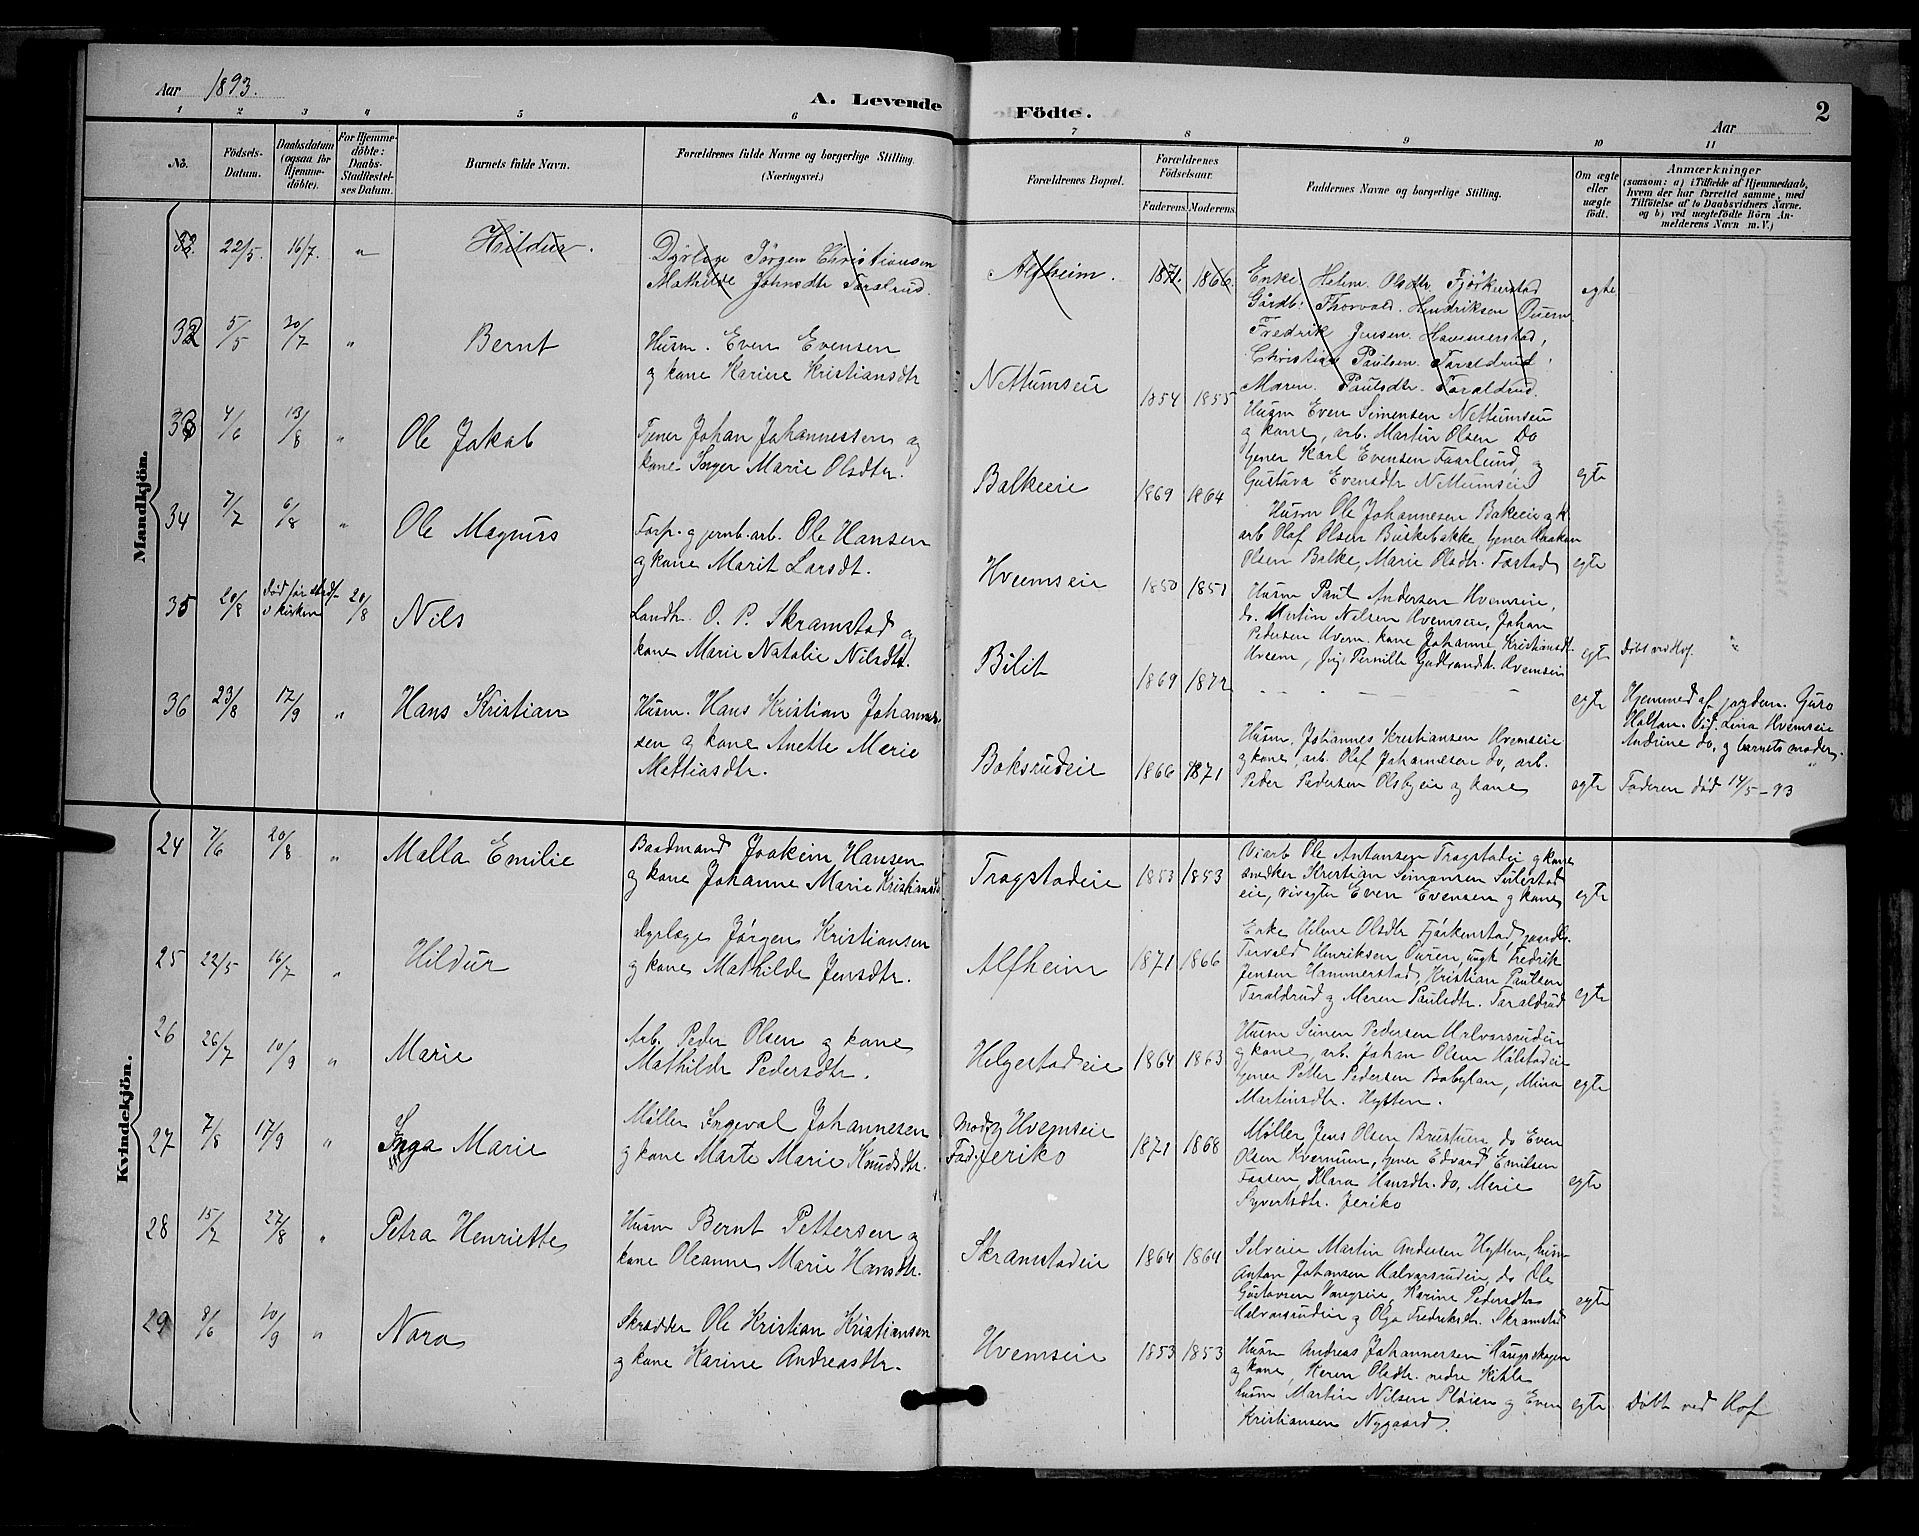 Aar 1893.
A. Levende Födte.
Aar
2
1 2 3 4 5 6 7 8 9 10 11
No.
Födsels-Datum.
Daabsdatum (ogsaa for Hjemme-döbte).
For Hjemme-döbte: Daabs-Stadfæstel-ses Datum.
Barnets fulde Navn.
Forældrenes fulde Navne og borgerlige Stilling. (Næringsvei.)
Forældrenes Bopæl.
Forældrenes Födselsaar.
Faderens. Moderens.
Faddernes Navne og borgerlige Stilling.
Om ægte eller uægte födt.
Anmærkninger
(saasom: a) i Tilfælde af Hjemmedaab,
hvem der har forrettet samme, med
Tilföielse af to Daabsvidners Navne.
og b) ved uægtefödte Börn An-
melderens Navn m. V.)
Mandkjön.
32 22/5. 16/7. " Hildur.
Dyrlæge Jørgen Christiansen
Mathilde Johnsdtr Taralrud.
Alfheim. 1871. 1866.
Enke Helene Olsdtr Fjørkenstad
Gårdb: Thorvald Hendriksen Ouern
Fredrik Jensen Hammerstad,
Christian Paulsen Taraldrud
Maren Paulsdtr. Taraldrud
egte
32 5/5 30/7 " Bernt
Husm. Even Evensen
og kone Karine Kristiansdtr
Nettumseie 1854 1855
Husm Even Simensen Nettumseie
og kone, arb. Martin Olsen Do
tjener Karl Evensen Faarlund, og
Gustava Evensdtr Nettumseie
egte
33 4/6 13/8 " Ole Jakob
Tjener Johan Johannessen og
kone Inger Marie Olsdtr.
Balkeeie 1869 1864
Husm Ole Johannesen Bakeeie og k
arb Olof Olsen Buskebakke, tjener Haakon
Olsen Balke, Marie Olsdtr. Fostad
egte
34 7/7 6/8 " Ole Magnus
Forp. og jernb. arb. Ole Hansen
og kone Marit Larsdt.
Hveemseie 1850 1851
Husm Paul Andersen Hvemseie,
do. Martin Nilsen Hvemseie, Johan
Pedersen Hvem. kone Johanne Kristiansdt.
Hveem, Pig. Pernille Gudbrandst. Hvemseie
egte
35 20/8 død før stadf. i kirken 20/8 Nils
Landh. O. P. Skramstad og
kone Marie Natalie Nilsdt.
Bilit 1869 1872
egte
Døbt ved Hof.
Hjemmed af jordem. Guro
Holtan. Vid. Lina Hvemseie
Andrine do, og barnets moder.
36 23/8 17/9 " Hans Kristian
Husm. Hans Kristian Johannes-
sen og kone Anette Marie
Mattiasdtr.
Boksrudeie 1866 1871
Husm. Johannes Kristiansen Hvemseie
og kone, arb. Olof Johannesen do, arb.
Peder Pedersen Olsbyeie og kone
egte
Faderen død 14/5-93
Kvindekjön.
24 7/6 20/8 " Malla Emilie
Baadmand Joakim Hansen
og kone Johanne Marie Kristiansdtr
Trogstadeie 1853 1853
Viarb Ole Antonsen Trogstadeie og kone
snedker Kristian Simonsen Seilestad
eie, vivogter Even Evensen og kone
egte
25 22/5 16/7 " Hildur
Dyrlæge Jørgen Kristiansen
og kone Mathilde Jensdtr.
Alfheim 1871 1866
Enke Helene Olsdtr Fjørkenstad, gaardb.
Torvald Henriksen Ouren, ungk Fredrik
Jensen Hammerstad, Kristian Paulsen
Taraldrud og Maren Paulsdtr. Taraldrud
egte
26 26/7 10/9 " Marie
Arb. Peder Olsen og kone
Mathilde Pedersdtr.
Helgestadeie 1864 1863
Husm Simen Pedersen Halvorsrudeie
og kone, arb. Johan Olsen Holstadeie
tjener Petter Pedersen Babylon, Mina
Martinsdtr. Hytten.
egte
27 7/8 17/9 " Inga Marie
Møller Ingeval Johannesen
og kone Marte Marie Knudsdtr.
Mod. Hvemseie
Fad. Jeriko 1871 1868
Møller Jens Olsen Brustuen, do Even
Olsen Kvernum, tjener Edvard Emilsen
Faasen, Klara Hansdtr. do, Marie
Syvertsdtr. Jeriko
egte
28 15/7 27/8 " Petra Henriette
Husm Bernt Pettersen og
kone Oleanne Marie Hansdtr.
Skramstadeie 1864 1864
Selveier Martin Andersen Hytten, husm
Anton Johansen Halvorsrudeie, do Ole
Gustavsen Vangseie, Karine Pedersdtr
Halvorsrudeie og Olga Fredriksdtr. Skramstad
egte
29 8/6 10/9 " Nora
Skrædder Ole Kristian Kristiansen
og kone Karine Andreasdtr.
Hvemseie 1853 1853
Husm Andreas Johannersen Haugsskogen
og kone, Karen Olsdtr. nedre Kihle
husm Martin Nilsen Pløien og Even
Kristiansen Nygaard.
egte
Døbt ved Hof